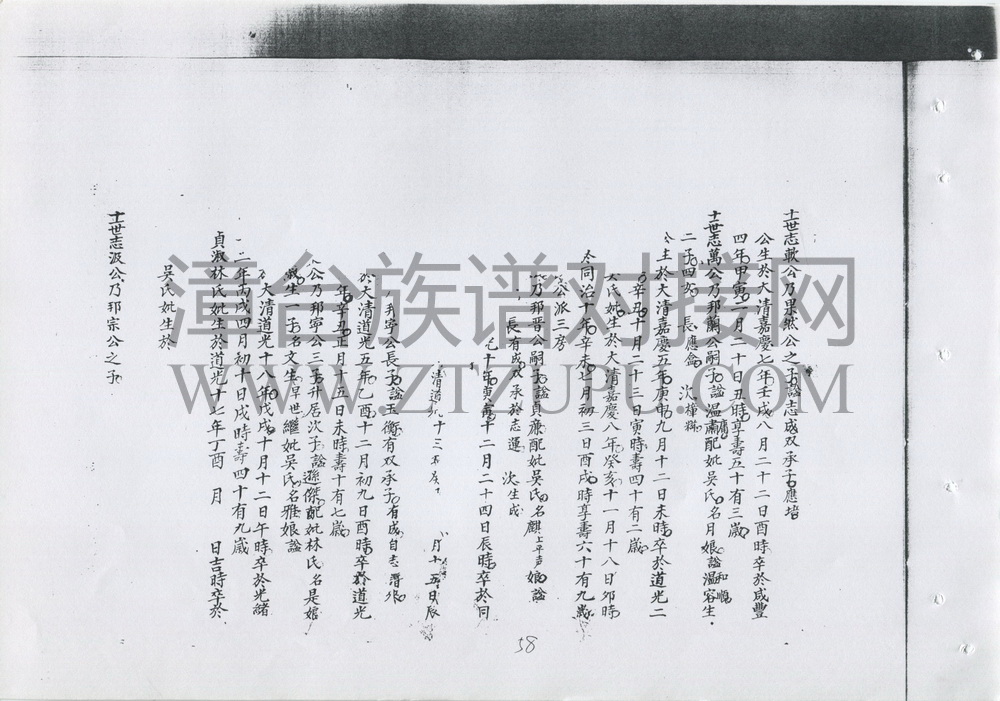 十一世志歡公乃果然公之子諡志成双承子應培
公生於大清嘉慶七年壬戌八月二十二日酉時卒於咸豐
四年甲寅二月二十日丑時享壽五十有三歲
十一世志萬公乃邦蘭公嗣子諡溫肅配妣吳氏名月娘諡溫容生
和順
二子四女 長應侖 次
公生於大清嘉慶五年庚申九月十二日未時卒於道光二
辛丑十月二十三日寅時壽四十有二歲
氏妣生於大清嘉慶八年癸亥十一月十八日卯時
於同治十年辛未七月初三日酉戌時享壽六十有九歲
公派三房
乃邦晉公嗣子諡貞廉配妣吳氏名麒上平声娘諡
長有成双承於志暹 次生成
清道光十三年 月十五日辰
寅十二月二十四日辰時卒於同
邦寧公長子諡玉衡有双承子有成自志晋
於大清道光五年乙酉十二月初九日酉時卒於道光
年辛丑正月十五日未時壽十有七歲
公乃邦寧公三子升居次子諡遜傑配妣林氏名是娘
淑生一子名文生早世繼妣吳氏名雅娘諡
大清道光十八年戊戌十月十二日午時卒於光緒
二年丙戌四月初十日戌時壽四十有九歲
貞淑林氏妣生於道光十七年丁酉 月 日吉時卒於
吳氏妣生於
十一世志汲公乃邦宗公之子
58
漳台族谱对接网
WWW.ZTZUPU.COM